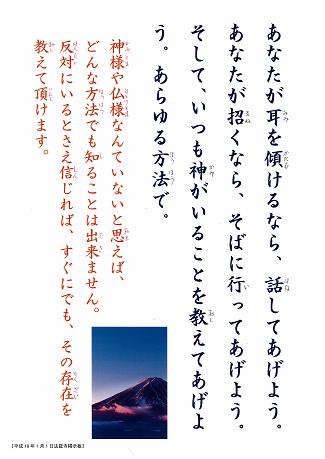 あなたが耳を傾けるなら、話してあげよう。
あなたが招くなら、そばに行ってあげよう。
そして、いつも神がいることを教えてあげよ
う。あらゆる方法で。
神様や仏様なんていないと思えば、
どんな方法でも知ることは出来ません。
反対にいるとさえ信じれば、すぐにでも、その存在を
教えて頂けます。